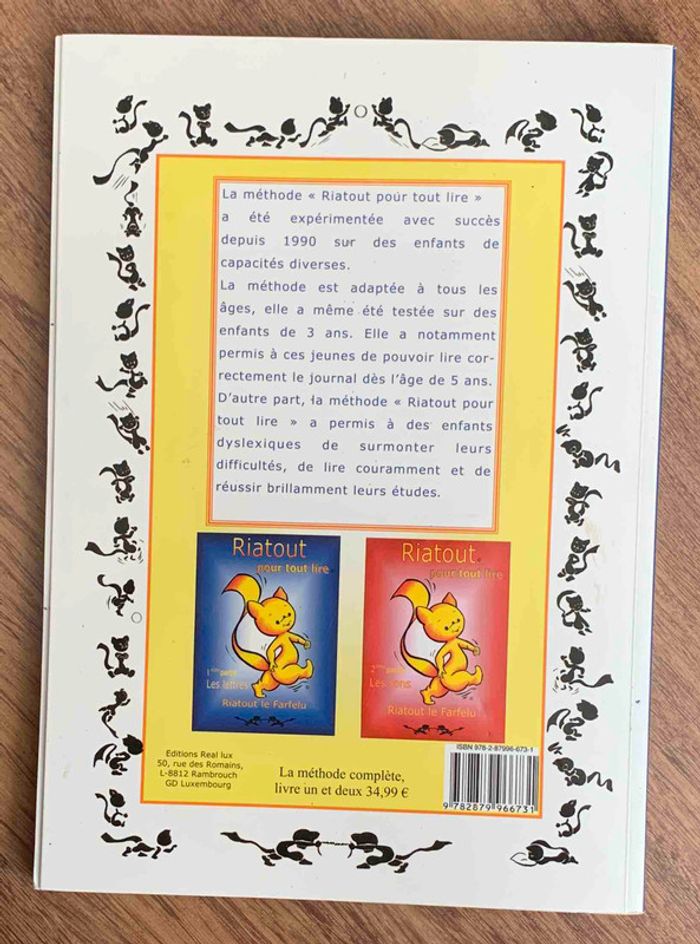 La méthode « Riatout pour tout lire »
a été expérimentée avec succès
depuis 1990 sur des enfants de
capacités diverses.
La méthode est adaptée à tous les
âges, elle a même été testée sur des
enfants de 3 ans. Elle a notamment
permis à ces jeunes de pouvoir lire cor-
rectement le journal dès l'âge de 5 ans.
D'autre part, la méthode « Riatout pour
tout lire » a permis à des enfants
dyslexiques de surmonter leurs
difficultés, de lire couramment et de
réussir brillamment leurs études.
Riatout
pour tout lire
1ère partie
Les lettres
Riatout le Farfelu
Riatout
pour tout lire
2ème partie
Les sons
Riatout le Farfelu
Editions Real lux
50, rue des Romains,
L-8812 Rambrouch
GD Luxembourg
La méthode complète,
livre un et deux 34,99 €
ISBN 978-2-87996-673-1
9 782879 966731